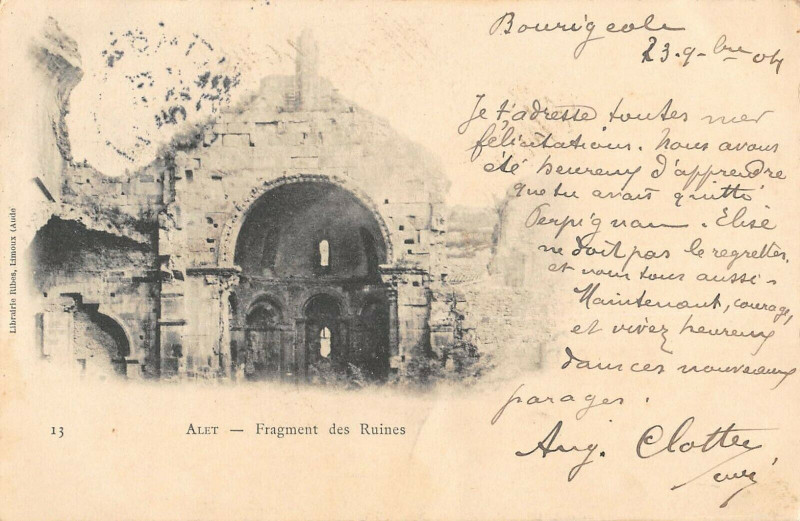 Bourigeole
23. 9-bre 04
Je t'adresse toutes mes
félicitations. Nous avons
été heureux d'apprendre
que tu avais quitté
Perpignan. Elisé
ne doit pas le regretter,
et nous tous aussi -
Maintenant, courage,
et vivez heureux
dans ces nouveaux
parages.
Aug.
curé
Librairie Ribes, Limoux (Aude
13
ALET — Fragment des Ruines